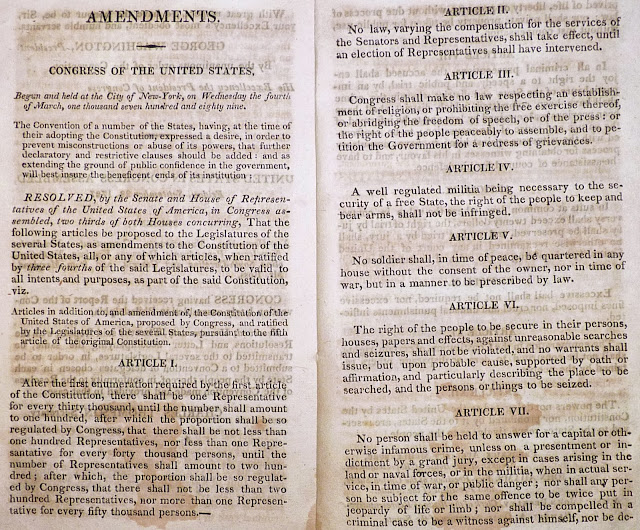 AMENDMENTS.
CONGRESS OF THE UNITED STATES,
Begun and held at the City of New-York, on Wednesday the fourth
of March, one thousand seven hundred and eighty nine.
The Convention of a number of the States, having, at the time of
their adopting the Constitution, expressed a desire, in order to
prevent misconstructions or abuse of its powers, that further
declaratory and restrictive clauses should be added: and as
extending the ground of public confidence in the government,
will best insure the beneficent ends of its institution:
RESOLVED, by the Senate and House of Represen-
tatives of the United States of America, in Congress as-
sembled, two thirds of both Houses concurring, That the
following articles be proposed to the Legislatures of the
several States, as amendments to the Constitution of the
United States, all, or any of which articles, when ratified
by three fourths of the said Legislatures, to be valid to
all intents and purposes, as part of the said Constitution,
viz.
Articles in addition to, and amendment of, the Constitution of the
United States of America, proposed by Congress, and ratified
by the Legislatures of the several States, pursuant to the fifth
article of the original Constitution.
ARTICLE I.
After the first enumeration required by the first article
of the Constitution, there shall be one Representative
for every thirty thousand, until the number shall amount
to one hundred, after which the proportion shall be so
regulated by Congress, that there shall be not less than
one hundred Representatives, nor less than one Repre-
santative for every forty thousand persons, until the
number of Representatives shall amount to two hun-
dred; after which, the proportion shall be so regulat-
ed by Congress, that there shall not be less than two
hundred Representatives, nor more than one Represen-
tative for every fifty thousand persons.—
ARTICLE II.
No law, varying the compensation for the services of
the Senators and Representatives, shall take effect, until
an election of Representatives shall have intervened.
ARTICLE III.
Congress shall make no law respecting an establish-
ment of religion, or prohibiting the free exercise thereof,
or abridging the freedom of speech, or of the press: or
the right of the people peaceably to assemble, and to pe-
tition the Government for a redress of grievances.
ARTICLE IV.
A well regulated militia being necessary to the se-
curity of a free State, the right of the people to keep and
bear arms, shall not be infringed.
ARTICLE V.
No soldier shall, in time of peace, be quartered in any
house without the consent of the owner, nor in time of
war, but in a manner to be prescribed by law.
ARTICLE VI.
The right of the people to be secure in their persons,
houses, papers and effects, against unreasonable searches
and seizures, shall not be violated, and no warrants shall
issue, but upon probable cause, supported by oath or
affirmation, and particularly describing the place to be
searched, and the persons or things to be seized.
ARTICLE VII.
No person shall be held to answer for a capital or oth-
erwise infamous crime, unless on a presentment or in-
dictment by a grand jury, except in cases arising in the
land or naval forces, or in the militia, when in actual ser-
vice, in time of war, or public danger; nor shall any per-
son be subject for the same offence to be twice put in
jeopardy of life or limb; nor shall be compelled in a
criminal case to be a witness against himself, nor be de-